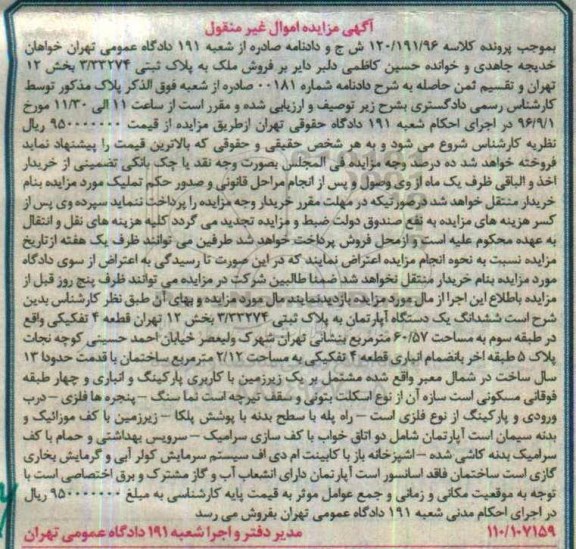 آگهی مزایده اموال غیر منقول
بموجب پرونده کلاسه ۱۲۰/۱۹۱/۹۶ ش ج و دادنامه صادره از شعبه ۱۹۱ دادگاه عمومی تهران خواهان
خدیجه جاهدی و خوانده حسین کاظمی دلبر دایر بر فروش ملک به پلاک ثبتی ۳/۳۳۲۷۴ بخش ۱۲
تهران و تقسیم ثمن حاصله به شرح دادنامه شماره ۰۰۱۸۱ صادره از شعبه فوق الذکر پلاک مذکور توسط
کارشناس رسمی دادگستری بشرح زیر توصیف و ارزیابی شده و مقرر است از ساعت ۱۱ الی ۱۱/۳۰ مورخ
۹۶/۹/۱ در اجرای احکام شعبه ۱۹۱ دادگاه حقوقی تهران ازطریق مزایده از قیمت ۹۵۰۰۰۰۰۰۰ ریال
نظریه کارشناس شروع می شود و به هر شخص حقیقی و حقوقی که بالاترین قیمت را پیشنهاد نماید
فروخته خواهد شد ده درصد وجه مزایده فی المجلس بصورت وجه نقد یا چک بانکی تضمینی از خریدار
اخذ و الباقی ظرف یک ماه از وی وصول و پس از انجام مراحل قانونی و صدور حکم تملیک مورد مزایده بنام
خریدار منتقل خواهد شد درصورتیکه در مهلت مقرر خریدار وجه مزایده را پرداخت ننماید سپرده وی پس از
کسر هزینه های مزایده به نفع صندوق دولت ضبط و مزایده تجدید می گردد کلیه هزینه های نقل و انتقال
به عهده محکوم علیه است و ازمحل فروش پرداخت خواهد شد طرفین می توانند ظرف یک هفته ازتاریخ
مزایده نسبت به نحوه انجام مزایده اعتراض نمایند که در این صورت تا رسیدگی به اعتراض از سوی دادگاه
مورد مزایده بنام خریدار منتقل نخواهد شد ضمنا طالبین شرکت در مزایده می توانند ظرف پنج روز قبل از
مزایده باطلاع این اجرا از مال مورد مزایده بازدید نمایند مال مورد مزایده و بهای آن طبق نظر کارشناس بدین
شرح است ششدانگ یک دستگاه آپارتمان به پلاک ثبتی ۳/۳۳۲۷۴ بخش ۱۲ تهران قطعه ۴ تفکیکی واقع
در طبقه سوم به مساحت ۶۰/۵۷ مترمربع بنشانی تهران شهرک ولیعصر خیابان احمد حسینی کوچه نجات
پلاک ۵ طبقه اخر بانضمام انباری قطعه ۴ تفکیکی به مساحت ۲/۱۲ مترمربع ساختمان با قدمت حدودا ۱۳
سال ساخت در شمال معبر واقع شده مشتمل بر یک زیرزمین با کاربری پارکینگ و انباری و چهار طبقه
فوقانی مسکونی است سازه آن از نوع اسکلت بتونی و سقف تیرچه است نما سنگ – پنجره ها فلزی – درب
ورودی و پارکینگ از نوع فلزی است – راه پله با سطح بدنه با پوشش پلکا – زیرزمین با کف موزائیک و
بدنه سیمان است آپارتمان شامل دو اتاق خواب با کف سازی سرامیک – سرویس بهداشتی و حمام با کف
سرامیک بدنه کاشی شده – اشپزخانه باز با کابینت ام دی اف سیستم سرمایش کولر آبی و گرمایش بخاری
گازی است ساختمان فاقد اسانسور است آپارتمان دارای انشعاب آب و گاز مشترک و برق اختصاصی است با
توجه به موقعیت مکانی و زمانی و جمع عوامل موثر به قیمت پایه کارشناسی به مبلغ ۹۵۰۰۰۰۰۰۰ ریال
در اجرای احکام مدنی شعبه ۱۹۱ دادگاه عمومی تهران بفروش می رسد
۱۱۰/۱۰۷۱۵۹ مدیر دفتر و اجرا شعبه ۱۹۱ دادگاه عمومی تهران